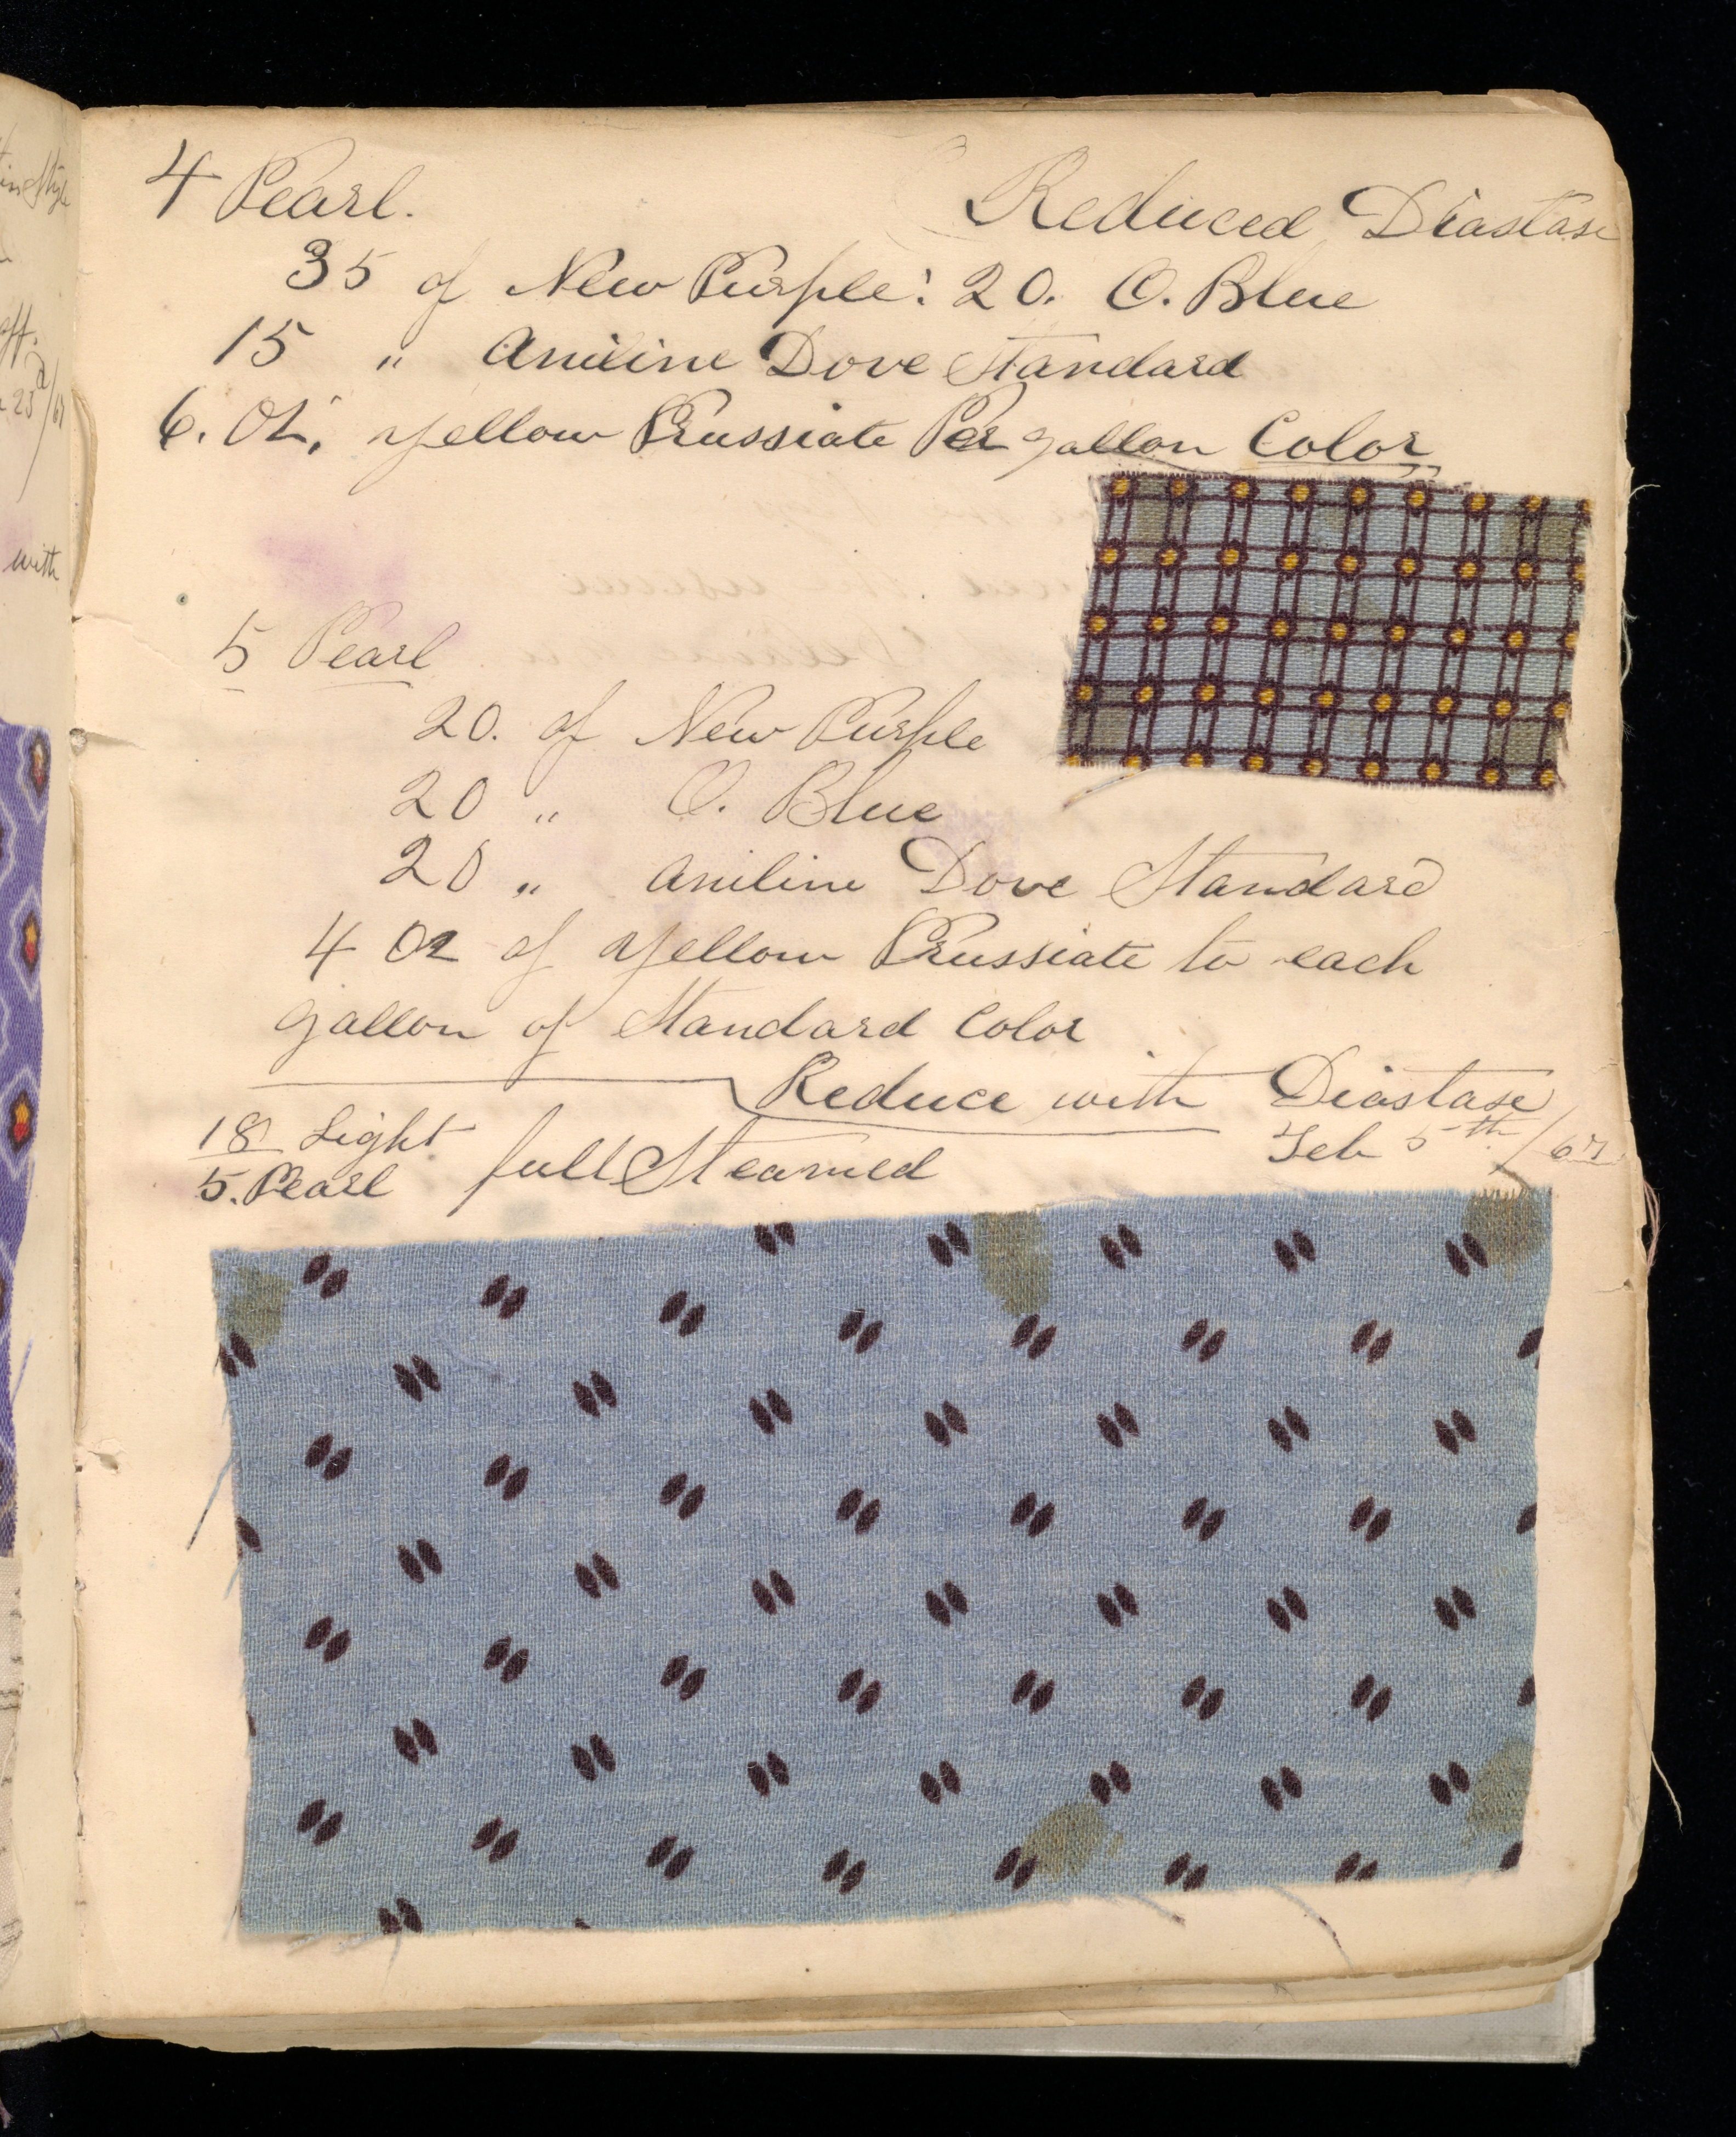 4 Pearl. Reduced Diastase
35 of New Purple: 20. O. Blue
15 " Aniline Dove Standard
6. Oz. yellow Prussiate Per gallon Color
5 Pearl
20. of New Purple
20 " O. Blue
20 " Aniline Dove Standard
4 Oz of yellow Prussiate to each
gallon of Standard Color
Reduce with Diastase
18 Light
5. Pearl full Steamed
Feb 5th/67
with